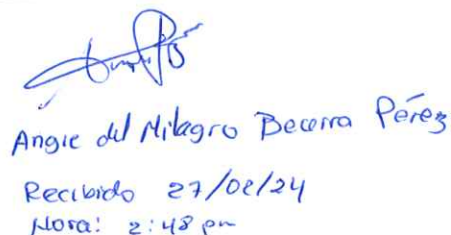 Angie del Milagro Becerra Pérez
Recibido 27/02/24
Hora: 2:48 pm